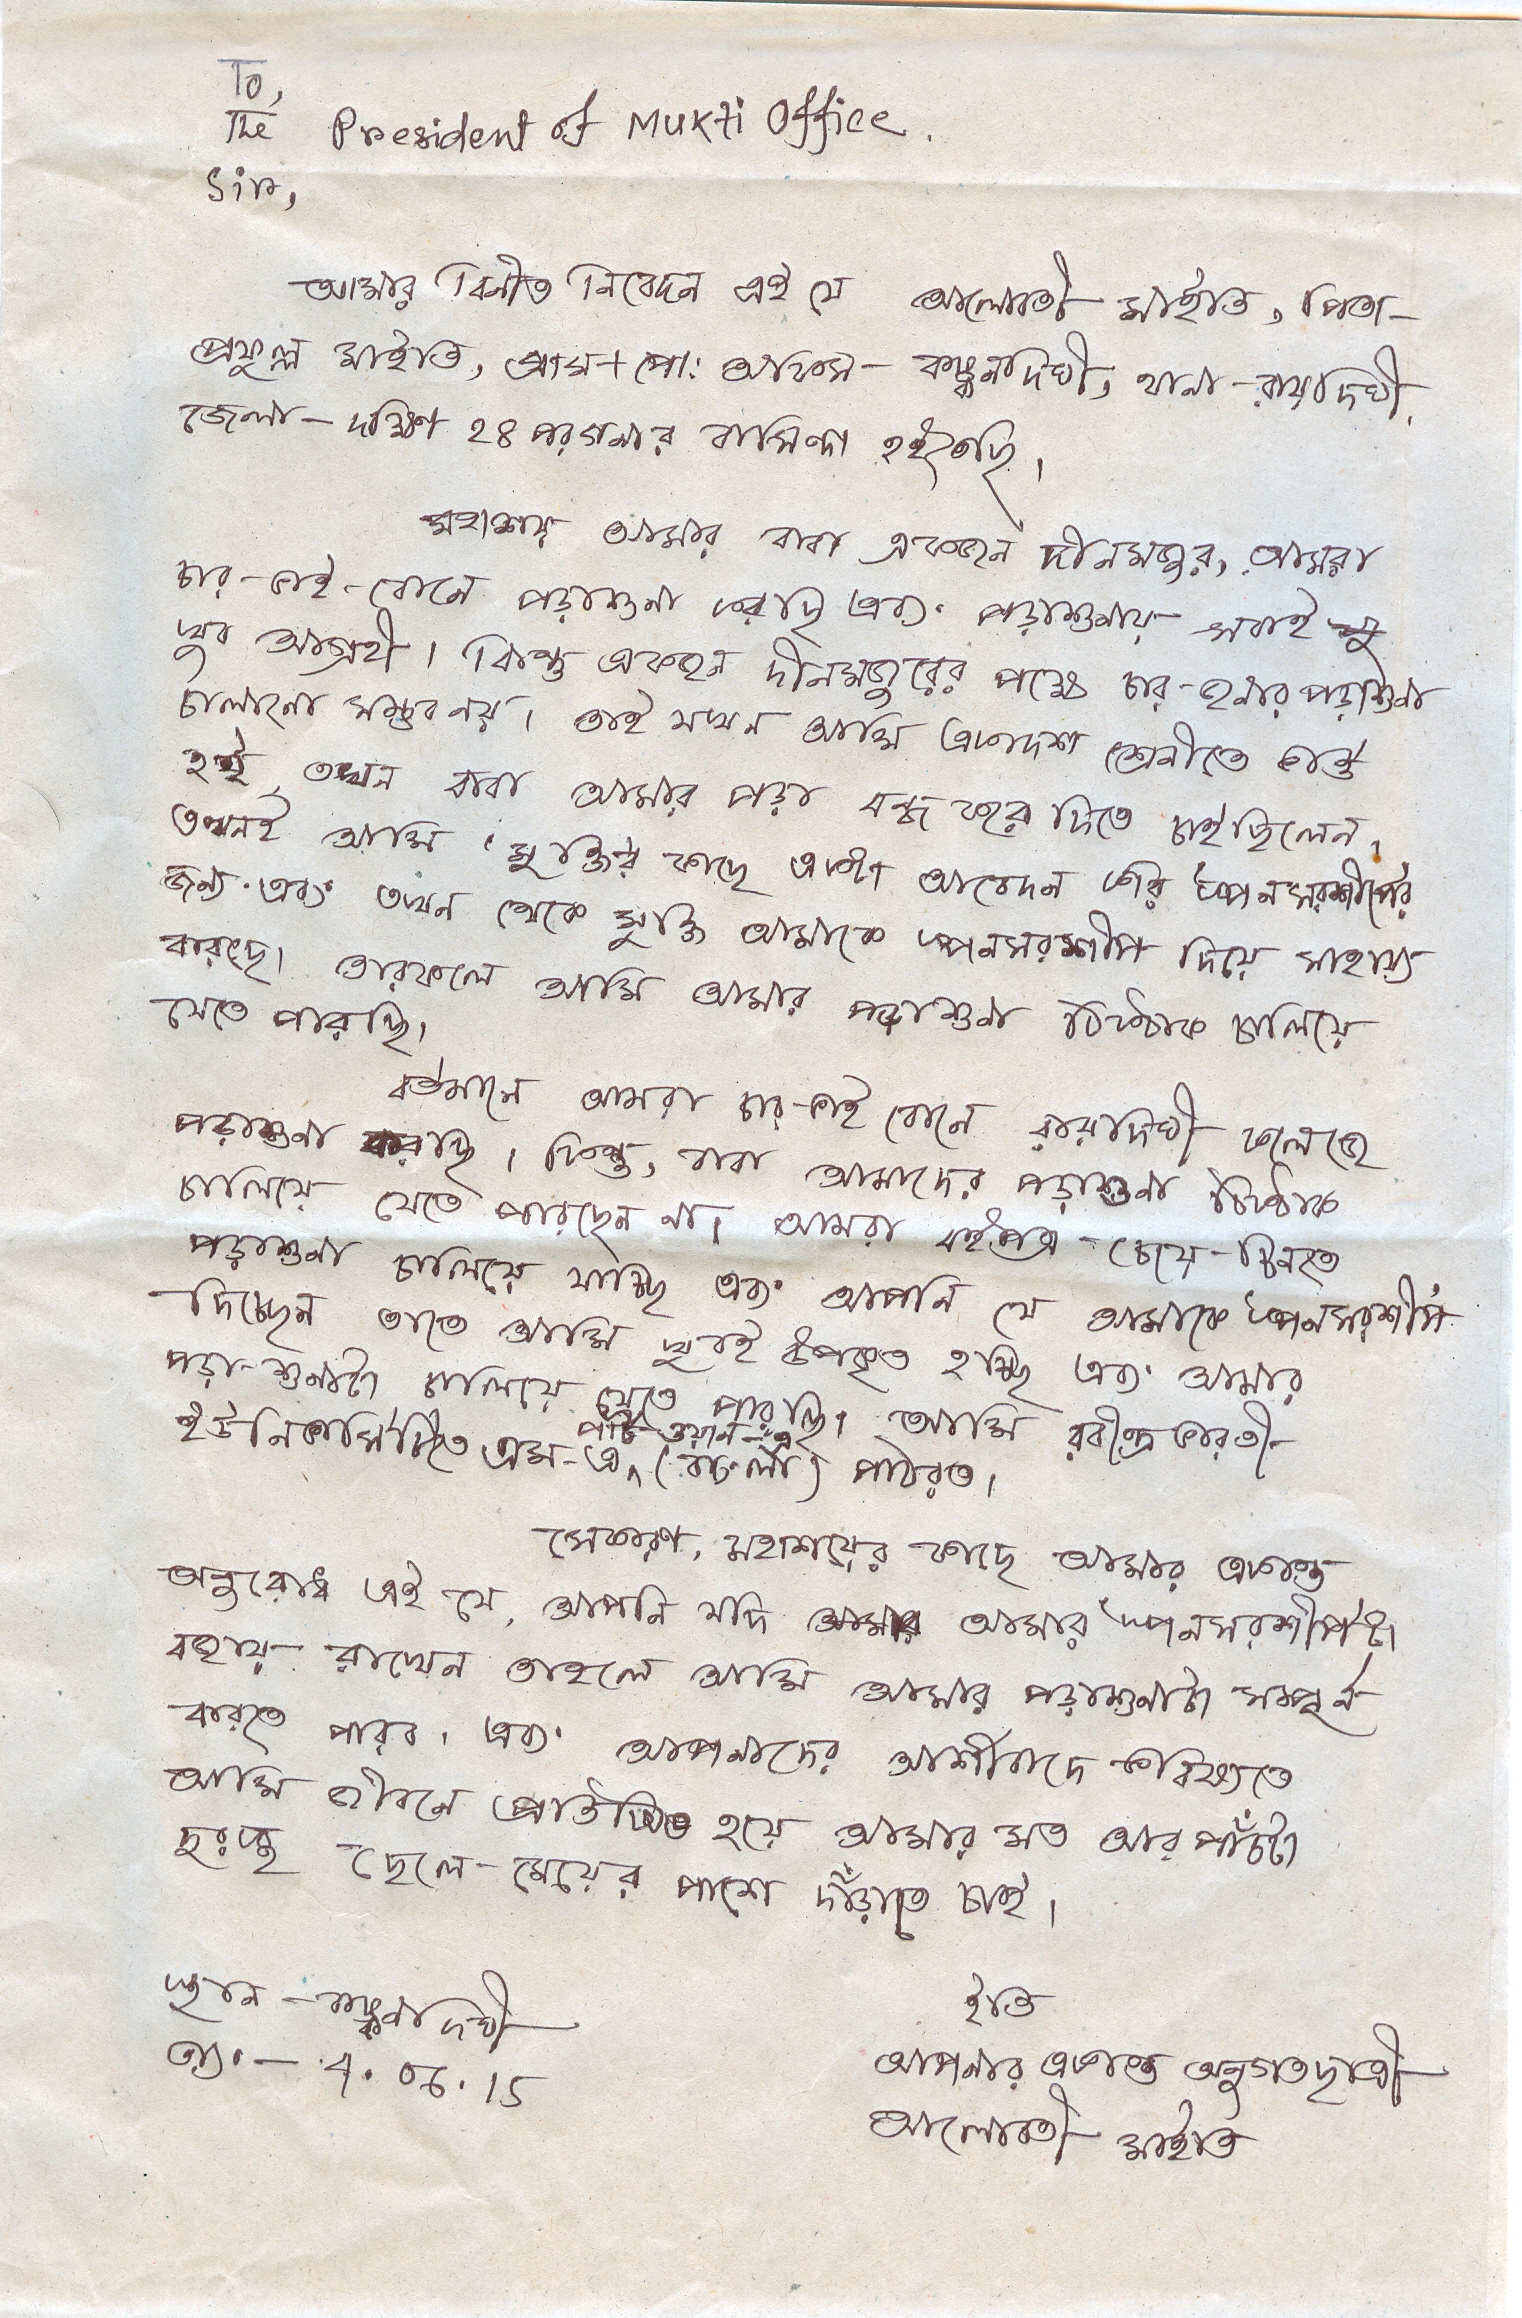 To,
The President of Mukti Office.
Sir,
আমার বিনীত নিবেদন এই যে আলোরতী মাইতি, পিতা-
প্রফুল্ল মাইতি, গ্রাম+পো: অফিস- কঙ্কনদিঘী, থানা-রায়দিঘী,
জেলা- দক্ষিণ ২৪ পরগনার বাসিন্দা হইতেছি।
মহাশয় আমার বাবা একজন দীনমজুর, আমরা
চার-ভাই-বোনে পড়াশুনা করছি এবং পড়াশুনায় সবাই
খুব আগ্রহী। কিন্তু একজন দীনমজুরের পক্ষে চার-জনার পড়াশুনা
চালানো সম্ভব নয়। তাই যখন আমি একাদশ শ্রেনীতে ভর্তি
হই, তখন বাবা আমার পড়া বন্ধ করে দিতে চাইছিলেন,
তখনই আমি 'মুক্তির কাছে একটা আবেদন করি স্পনসরশীপের
জন্য এবং তখন থেকে মুক্তি আমাকে স্পনসরশীপ দিয়ে সাহায্য
করছে। তারফলে আমি আমার পড়াশুনা ঠিকঠাক চালিয়ে
যেতে পারছি।
বর্তমানে আমরা চার-ভাই বোনে রায়দিঘী কলেজে
পড়াশুনা করছি। কিন্তু, বাবা আমাদের পড়াশুনা ঠিকঠাক
চালিয়ে যেতে পারছেন না। আমরা বইপত্র-চেয়ে-চিনতে
পড়াশুনা চালিয়ে যাচ্ছি এবং আপনি যে আমাকে স্পনসরশীপ
দিচ্ছেন তাতে আমি খুবই উপকৃত হচ্ছি এবং আমার
পড়া-শুনাটা চালিয়ে যেতে পারছি। আমি রবীন্দ্রভারতী
ইউনিভার্সিটিতে এম-এ, পার্ট-ওয়ান-এ (বাংলা) পাঠরত।
সেকারণ, মহাশয়ের কাছে আমার একান্ত
অনুরোধ এই যে, আপনি যদি আমার আমার স্পনসরশীপটা
বজায় রাখেন তাহলে আমি আমার পড়াশুনাটা সম্পূর্ন
করতে পারব। এবং আপনাদের আর্শীবাদে ভবিষ্যতে
আমি জীবনে প্রতিষ্ঠিত হয়ে আমার মত আর পাঁচটা
দুঃস্থ ছেলে-মেয়ের পাশে দাঁড়াতে চাই।
স্থান - কঙ্কনদিঘী
তাং - ৭.০৬.15
ইতি
আপনার একান্ত অনুগতছাত্রী
আলোরতী মাইতি